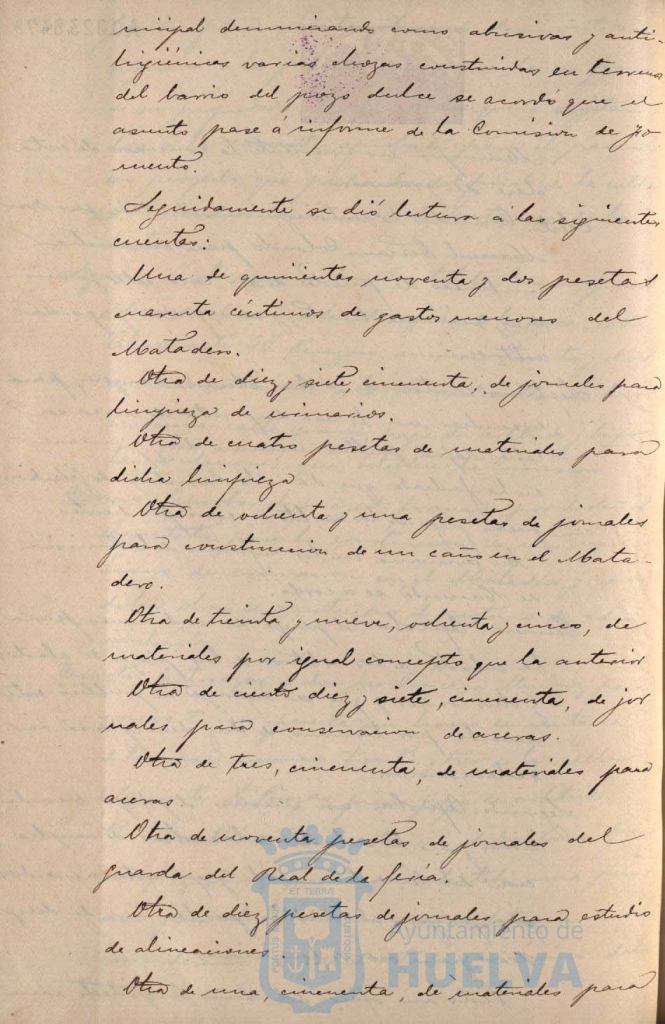 nicipal denunciando como abusivas y anti-
higiénicas varias chozas construidas en terrenos
del barrio del pozo dulce se acordó que el
asunto pase á informe de la Comision de Fo-
mento.
Seguidamente se dió lectura á las siguientes
cuentas:
Una de quinientas noventa y dos pesetas
cuarenta céntimos de gastos menores del
Matadero.
Otra de diez y siete, cincuenta, de jornales para
limpieza de urinarios.
Otra de cuatro pesetas de materiales para
dicha limpieza
Otra de ochenta y una pesetas de jornales
para construccion de un caño en el Mata-
dero.
Otra de treinta y nueve, ochenta y cinco, de
materiales por igual concepto que la anterior
Otra de ciento diez y siete, cincuenta, de jor
nales para conservacion de aceras.
Otra de tres, cincuenta, de materiales para
aceras
Otra de noventa pesetas de jornales del
guarda del Real de la feria.
Otra de diez pesetas de jornales para estudio
de alineaciones.
Otra de una, cincuenta, de materiales para
Ayuntamiento de
HUELVA